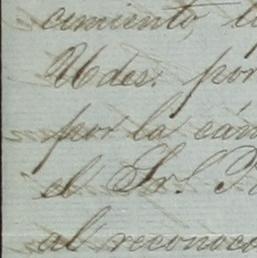 cimiento,
Udes. por
por la cám
el Sr. P
al reconoco